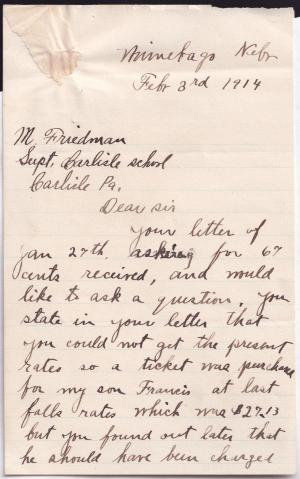 Winnebago Nebr
Febr 3rd 1914
M. Friedman
Supt. Carlisle school
Carlisle Pa.
Dear sir
Your letter of
jan 27th. asking for 67
cents received, and would
like to ask a question. You
state in your letter that
you could not get the present
rates so a ticket was purchase
for my son Francis at last
falls rates which was $27.13
but you found out later that
he should have been charged